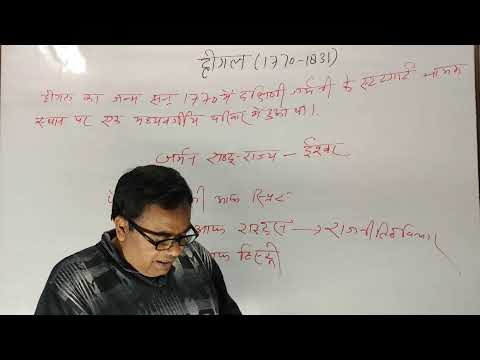 हीगल (1770-1831)
हीगल का जन्म सन् 1770 में दक्षिणी जर्मनी के स्टटगार्ट नामक
स्थान पर एक मध्यवर्गीय परिवार में हुआ था।
जर्मन राष्ट्र-राज्य - ईश्वर
आफ स्पिरिट
आफ राइट्स → राजनीतिक विचार
आफ हिस्ट्री